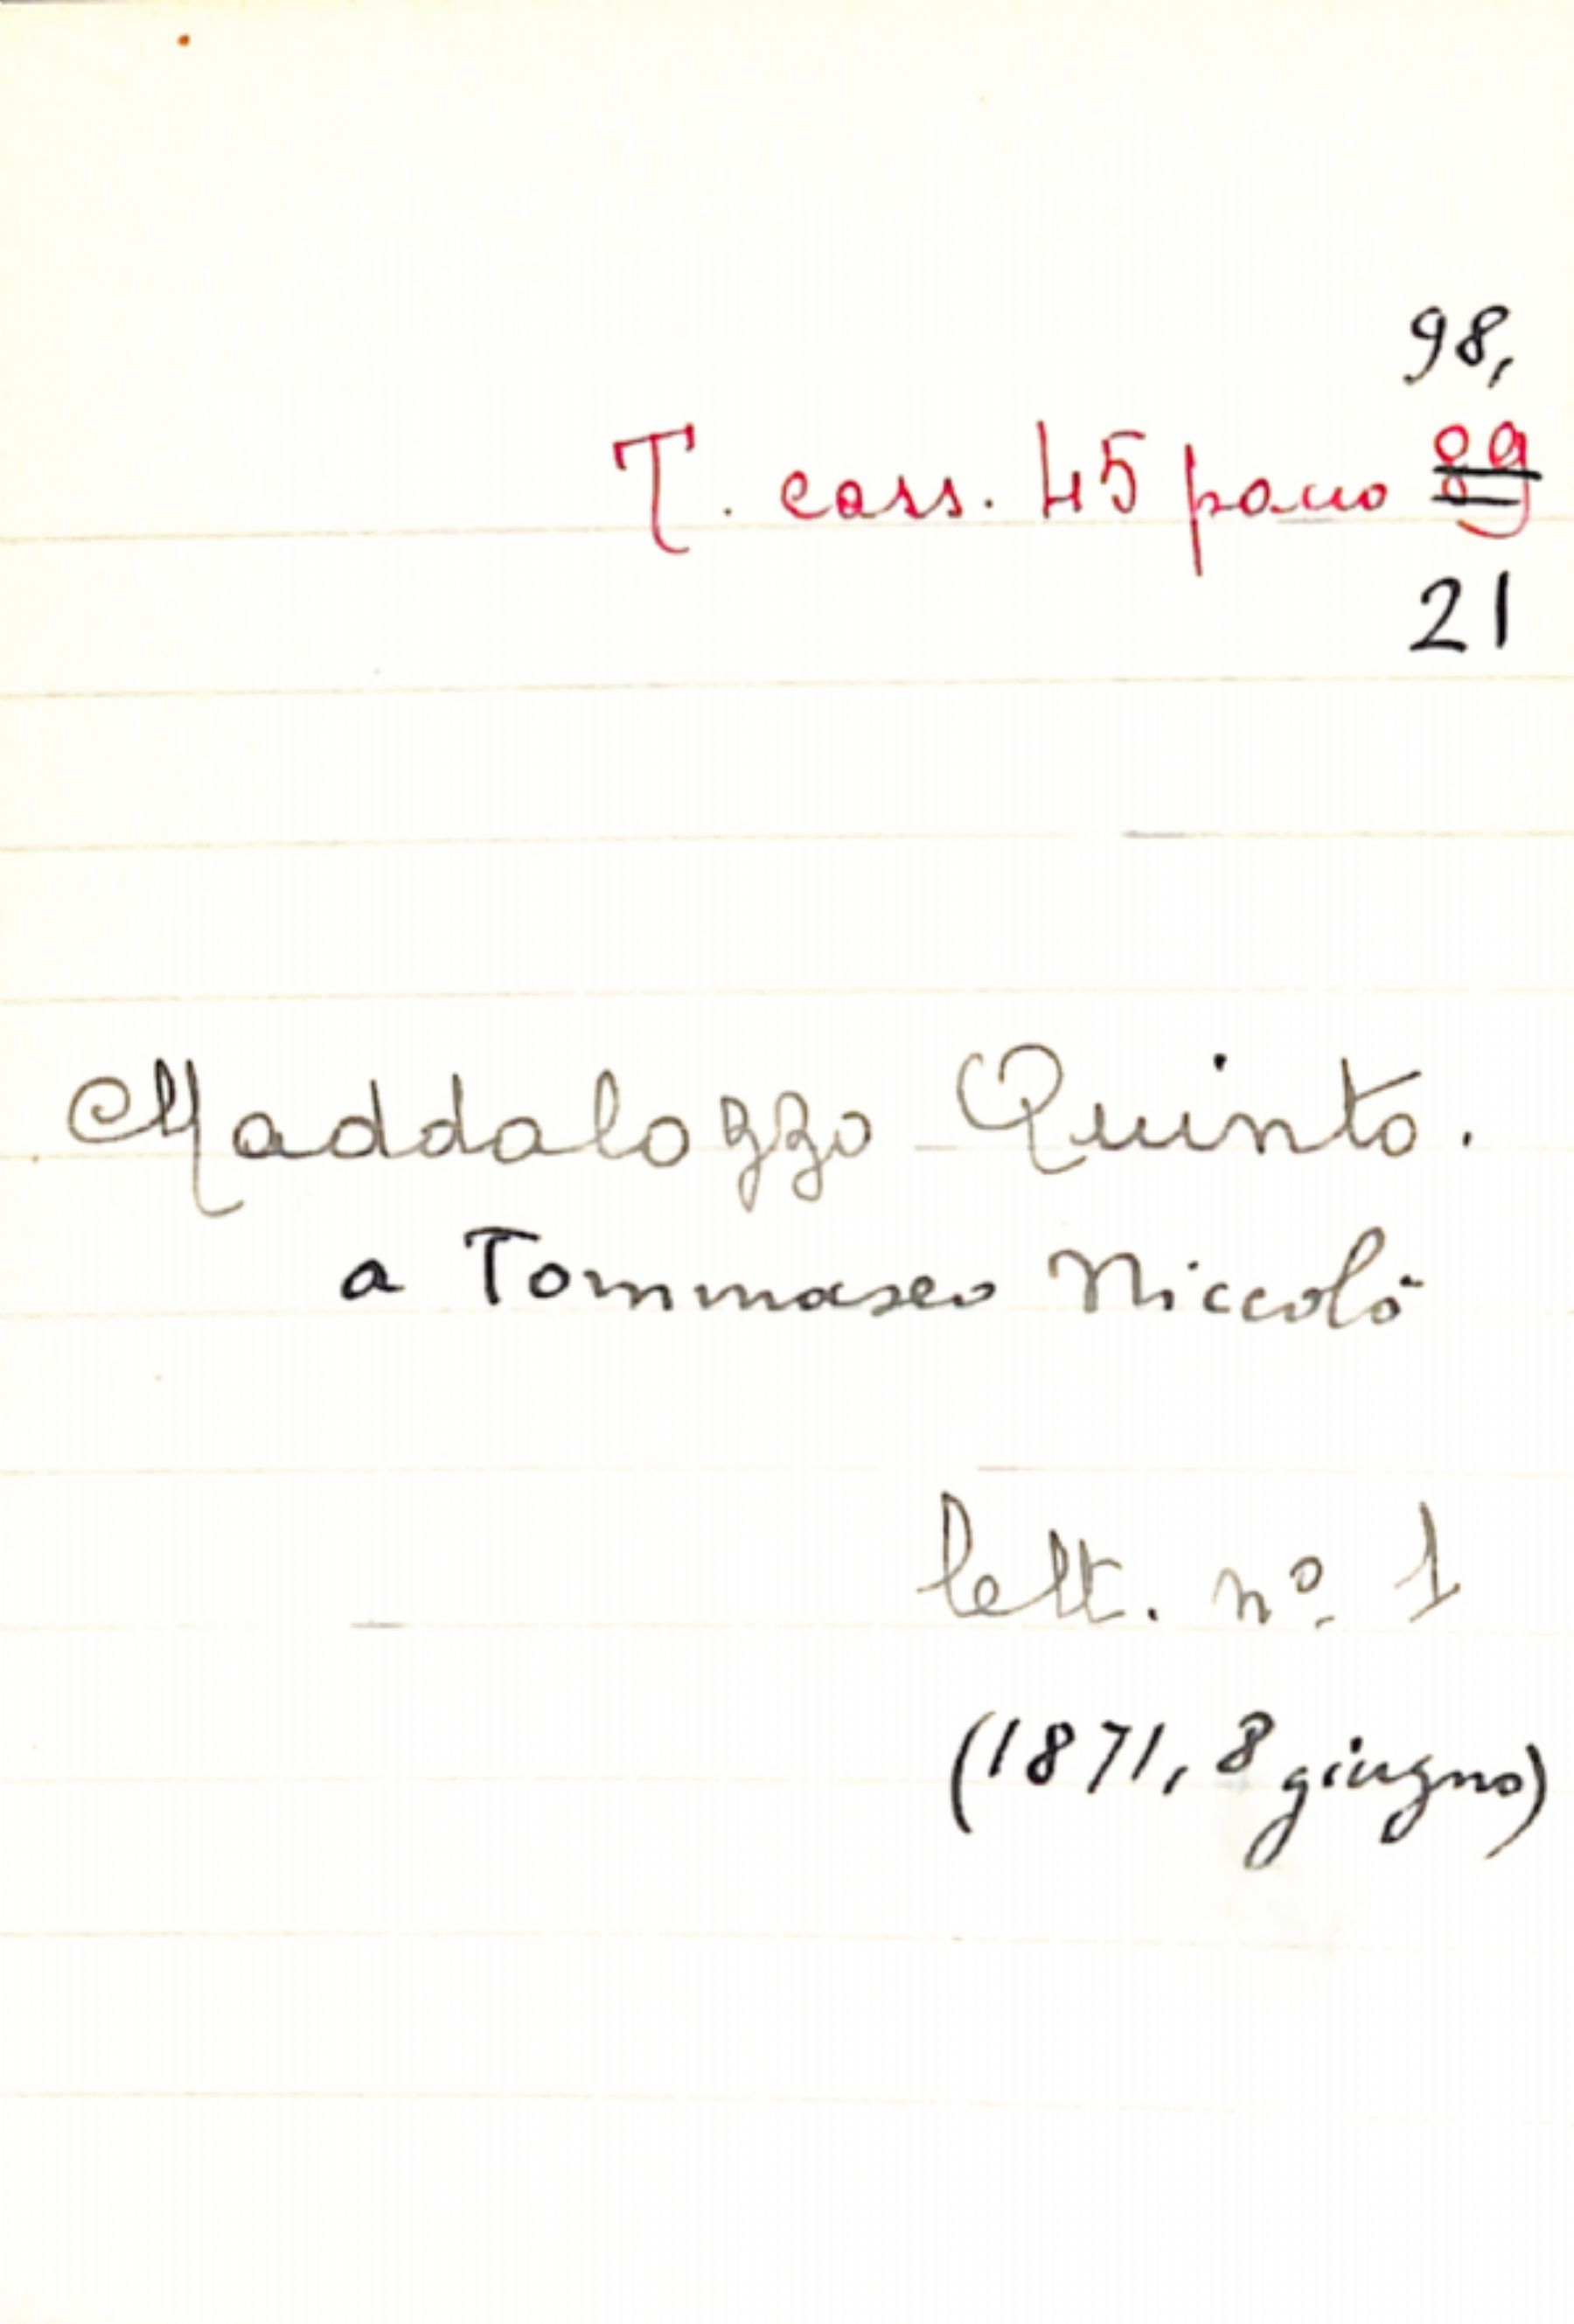 98,
T. cass. 45 pacco 89
21
Maddalozzo Quinto.
a Tommaseo Niccolò
lett. nº 1
(1871, 8 giugno)